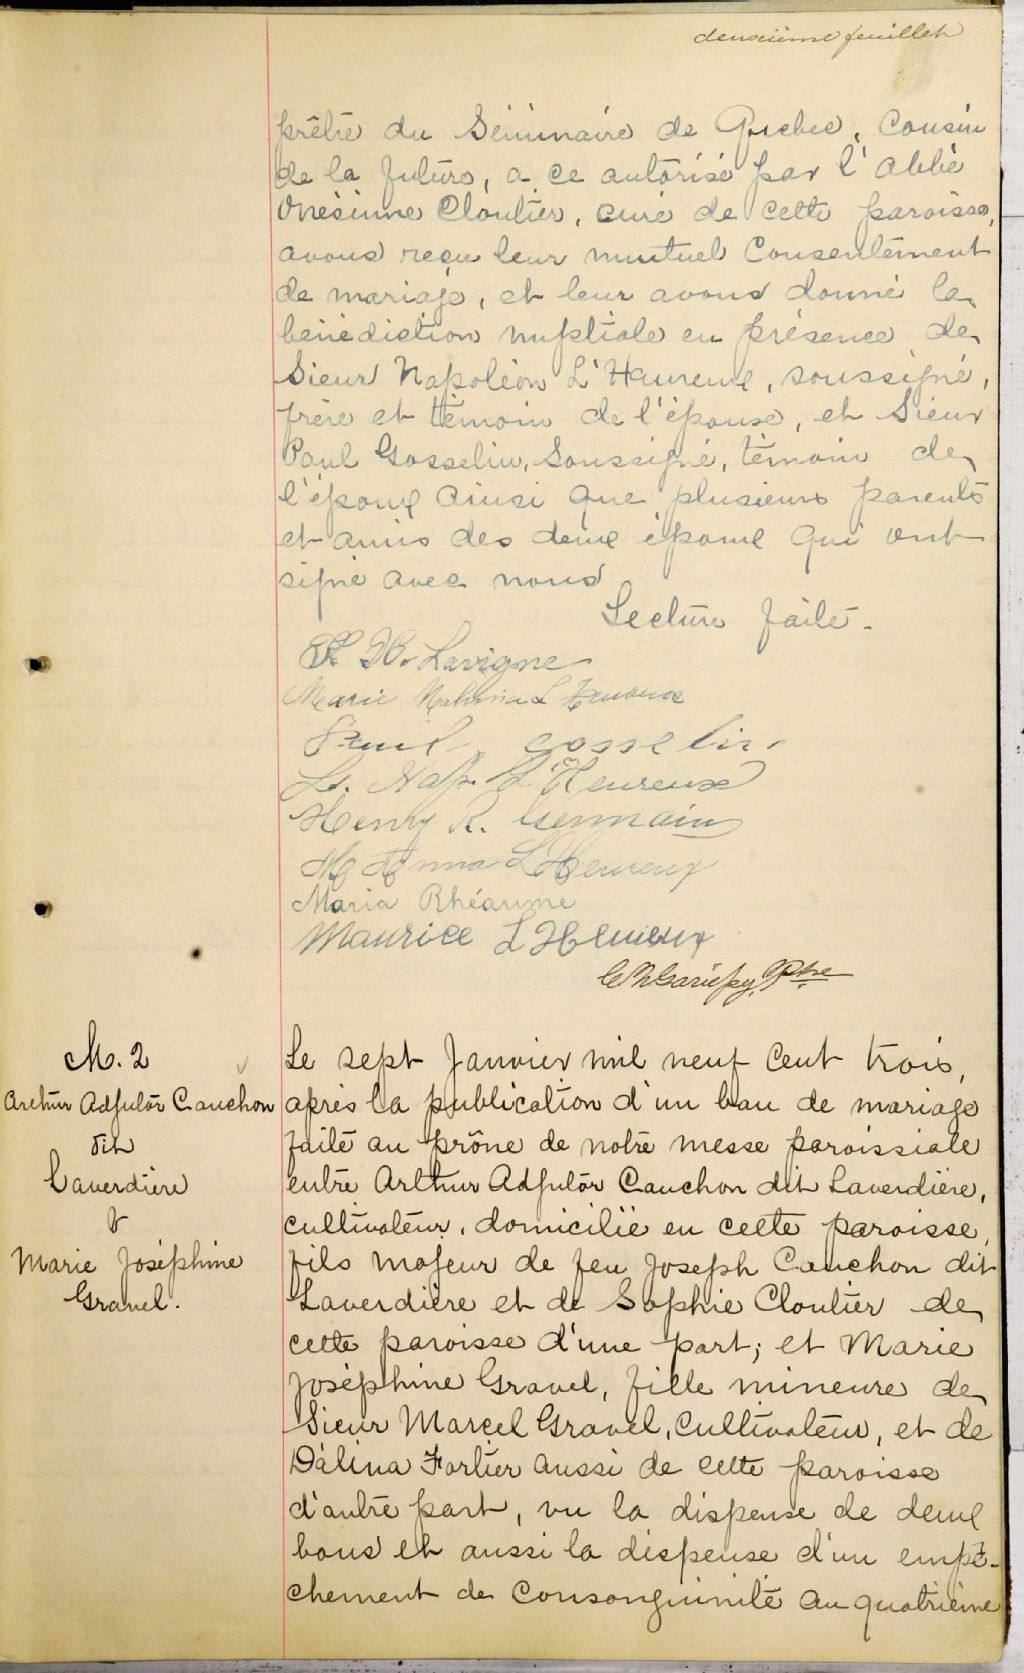 deuxième feuillet
prêtre du Séminaire de Quebec, Cousin
de la future, a ce autorisé par l'Abbé
Onésime Cloutier, curé de cette paroisse,
avons reçu leur mutuel Consentement
de mariage, et leur avons donné la
bénédiction nuptiale en présence de
Sieur Napoléon L'Heureux, soussigné,
frère et témoin de l'épouse, et Sieur
Paul Gosselin, Soussigné, témoin de
l'époux ainsi que plusieurs parents
et amis des deux époux qui ont
signé avec nous
Lecture faite.
H. Lavigne
Marie L'Heureux
Paul gosselin
Ls. Nap. L'Heureux
Henry R. Germain
M Anna L'Heureux
Maria Rhéaume
Maurice L'Heureux
Gariépy, Ptre
M. 2
Arthur Adjutor Cauchon
dit
Laverdière
&
Marie Joséphine
Gravel.
Le sept Janvier mil neuf Cent trois,
après la publication d'un ban de mariage
faite au prône de notre messe paroissiale
entre Arthur Adjutor Cauchon dit Laverdière,
cultivateur, domicilié en cette paroisse,
fils majeur de feu Joseph Cauchon dit
Laverdière et de Sophie Cloutier de
cette paroisse d'une part; et Marie
Joséphine Gravel, fille mineure de
Sieur Marcel Gravel, Cultivateur, et de
Dálina Fortier aussi de cette paroisse
d'autre part, vu la dispense de deux
bans et aussi la dispense d'un empê-
chement de Consanguinité au quatrième